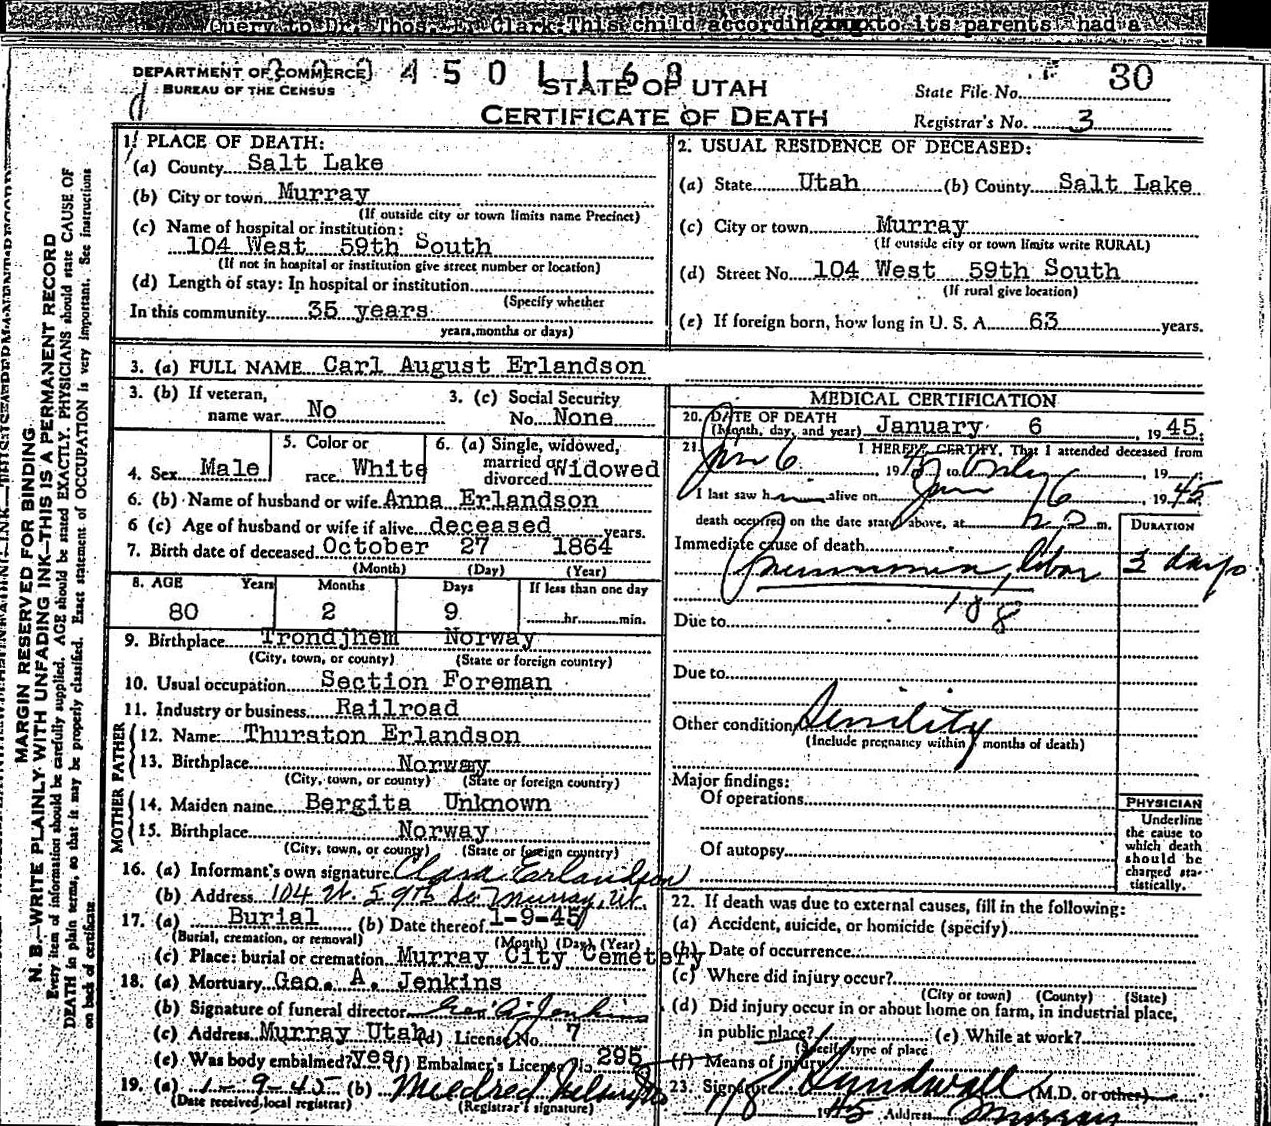 Query to Dr. Thos. Clark. This child according to its parents had a
DEPARTMENT OF COMMERCE
BUREAU OF THE CENSUS
STATE OF UTAH
CERTIFICATE OF DEATH
State File No. 30
Registrar's No. 3
1. PLACE OF DEATH:
(a) County Salt Lake
(b) City or town Murray
(If outside city or town limits name Precinct)
(c) Name of hospital or institution:
104 West 59th South
(If not in hospital or institution give street number or location)
(d) Length of stay: In hospital or institution
(Specify whether
In this community 35 years
years, months or days)
2. USUAL RESIDENCE OF DECEASED:
(a) State Utah (b) County Salt Lake
(c) City or town Murray
(If outside city or town limits write RURAL)
(d) Street No. 104 West 59th South
(If rural give location)
(e) If foreign born, how long in U. S. A. 63 years.
3. (a) FULL NAME Carl August Erlandson
3. (b) If veteran, 3. (c) Social Security
name war No No. None
4. Sex Male
5. Color or
race White
6. (a) Single, widowed,
married or
divorced Widowed
6. (b) Name of husband or wife Anna Erlandson
6 (c) Age of husband or wife if alive deceased years.
7. Birth date of deceased October 27 1864
(Month) (Day) (Year)
8. AGE Years Months Days If less than one day
80 2 9 hr. min.
9. Birthplace Trondjhem Norway
(City, town, or county) (State or foreign country)
10. Usual occupation Section Foreman
11. Industry or business Railroad
FATHER
12. Name: Thurston Erlandson
13. Birthplace Norway
(City, town, or county) (State or foreign country)
MOTHER
14. Maiden name Bergita Unknown
15. Birthplace Norway
(City, town, or county) (State or foreign country)
16. (a) Informant's own signature Clara Erlandson
(b) Address 104 W. 59th So. Murray, Ut.
17. (a) Burial (b) Date thereof 1-9-45
(Burial, cremation, or removal) (Month) (Day) (Year)
(c) Place: burial or cremation Murray City Cemetery
18. (a) Mortuary Geo. A. Jenkins
(b) Signature of funeral director Geo. A. Jenkins
(c) Address Murray Utah (d) License No. 7
(e) Was body embalmed? yes (f) Embalmer's License No. 295
19. (a) 1-9-45 (b) Mildred
(Date received local registrar) (Registrar's signature)
MEDICAL CERTIFICATION
20. DATE OF DEATH
(Month, day, and year) January 6, 1945.
21. I HEREBY CERTIFY, That I attended deceased from
Jan 6 1945 to only, 19
I last saw him alive on Jan 6 1945
death occurred on the date stated above, at m.
DURATION
Immediate cause of death
Pneumonia, lobar 3 days
108
Due to
Due to
Other conditions Senility
(Include pregnancy within 3 months of death)
Major findings:
Of operations
Of autopsy
PHYSICIAN
Underline
the cause to
which death
should be
charged sta-
tistically.
22. If death was due to external causes, fill in the following:
(a) Accident, suicide, or homicide (specify)
(b) Date of occurrence
(c) Where did injury occur?
(City or town) (County) (State)
(d) Did injury occur in or about home on farm, in industrial place,
in public place? (e) While at work?
(Specify type of place
(f) Means of injury
23. Signature Sundwall (M.D. or other)
1/8 1945 Address Murray
MARGIN RESERVED FOR BINDING
N. B.—WRITE PLAINLY WITH UNFADING INK—THIS IS A PERMANENT RECORD
Every item of information should be carefully supplied. AGE should be stated EXACTLY. PHYSICIANS should state CAUSE OF
DEATH in plain terms, so that it may be properly classified. Exact statement of OCCUPATION is very important. See instructions
on back of certificate